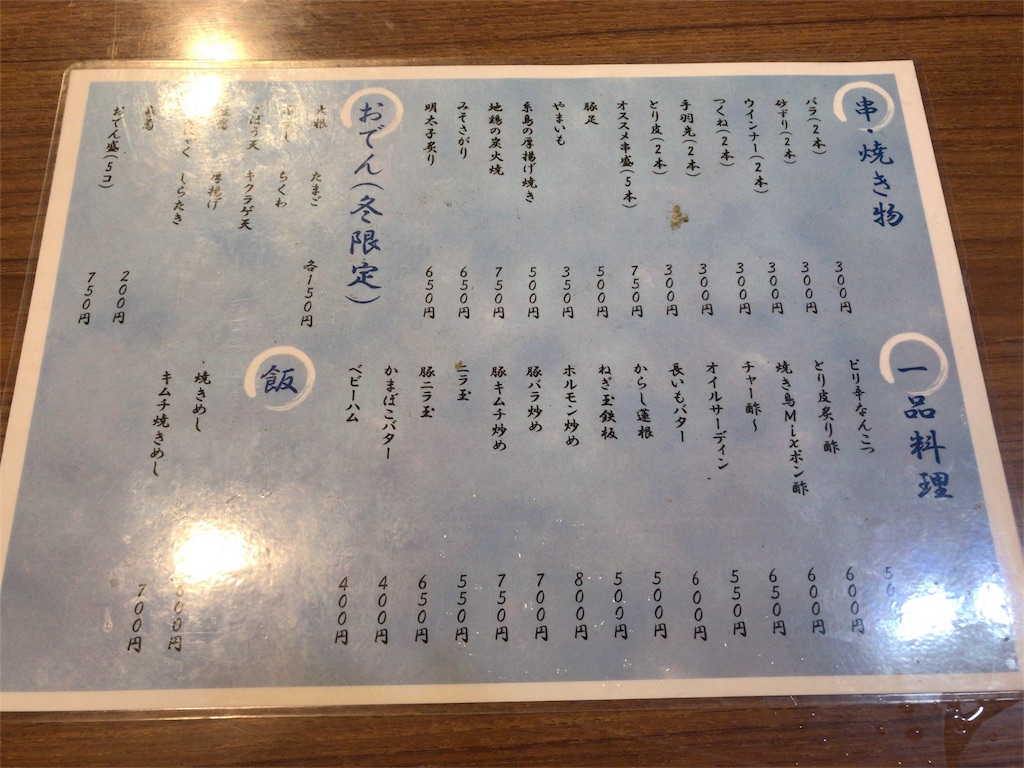 串・焼き物
バラ(2本) 300円
砂ずり(2本) 300円
ウインナー(2本) 300円
つくね(2本) 300円
手羽先(2本) 300円
とり皮(2本) 300円
オススメ串盛(5本) 750円
豚足 500円
やまいも 350円
糸島の厚揚げ焼き 500円
地鶏の炭火焼 750円
みそさがり 650円
明太子炙り 650円
おでん(冬限定)
大根 たまご 各150円
ちくわ
ごぼう天 キクラゲ天
厚揚げ
しらたき
200円
おでん盛(5コ) 750円
一品料理
ピリ辛なんこつ
とり皮炙り酢 600円
焼き鳥Mixポン酢 600円
チャー酢～ 650円
オイルサーディン 550円
長いもバター 600円
からし蓮根 500円
ねぎ玉鉄板 500円
ホルモン炒め 800円
豚バラ炒め 700円
豚キムチ炒め 750円
ニラ玉 550円
豚ニラ玉 650円
かまぼこバター 400円
ベビーハム 400円
飯
焼きめし
キムチ焼きめし 700円